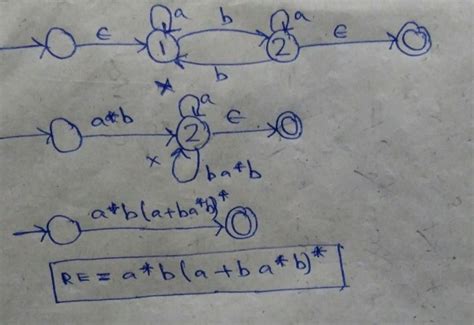 a b a
ϵ 1 2 ϵ
b
x a
a*b 2 ϵ
x ba*b
a*b(a+ba*b)*
RE = a*b(a+ba*b)*